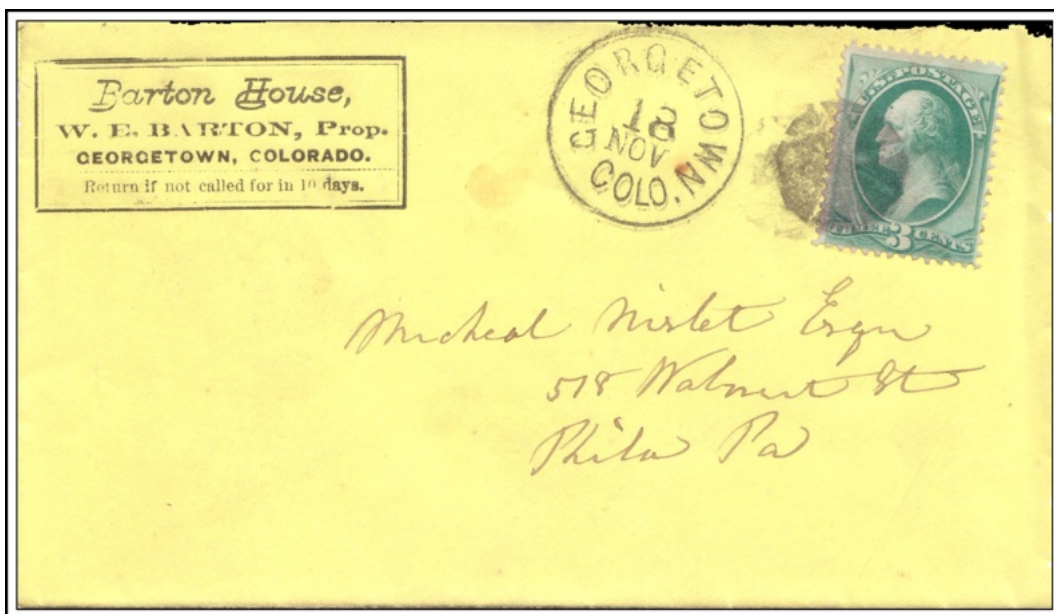 Barton House,
W. E. BARTON, Prop.
GEORGETOWN, COLORADO.
Return if not called for in 10 days.
GEORGETOWN.
18
NOV
COLO.
U.S. POSTAGE
THREE 3 CENTS
Micheal Nisbet Esqr
518 Walnut St
Phila Pa